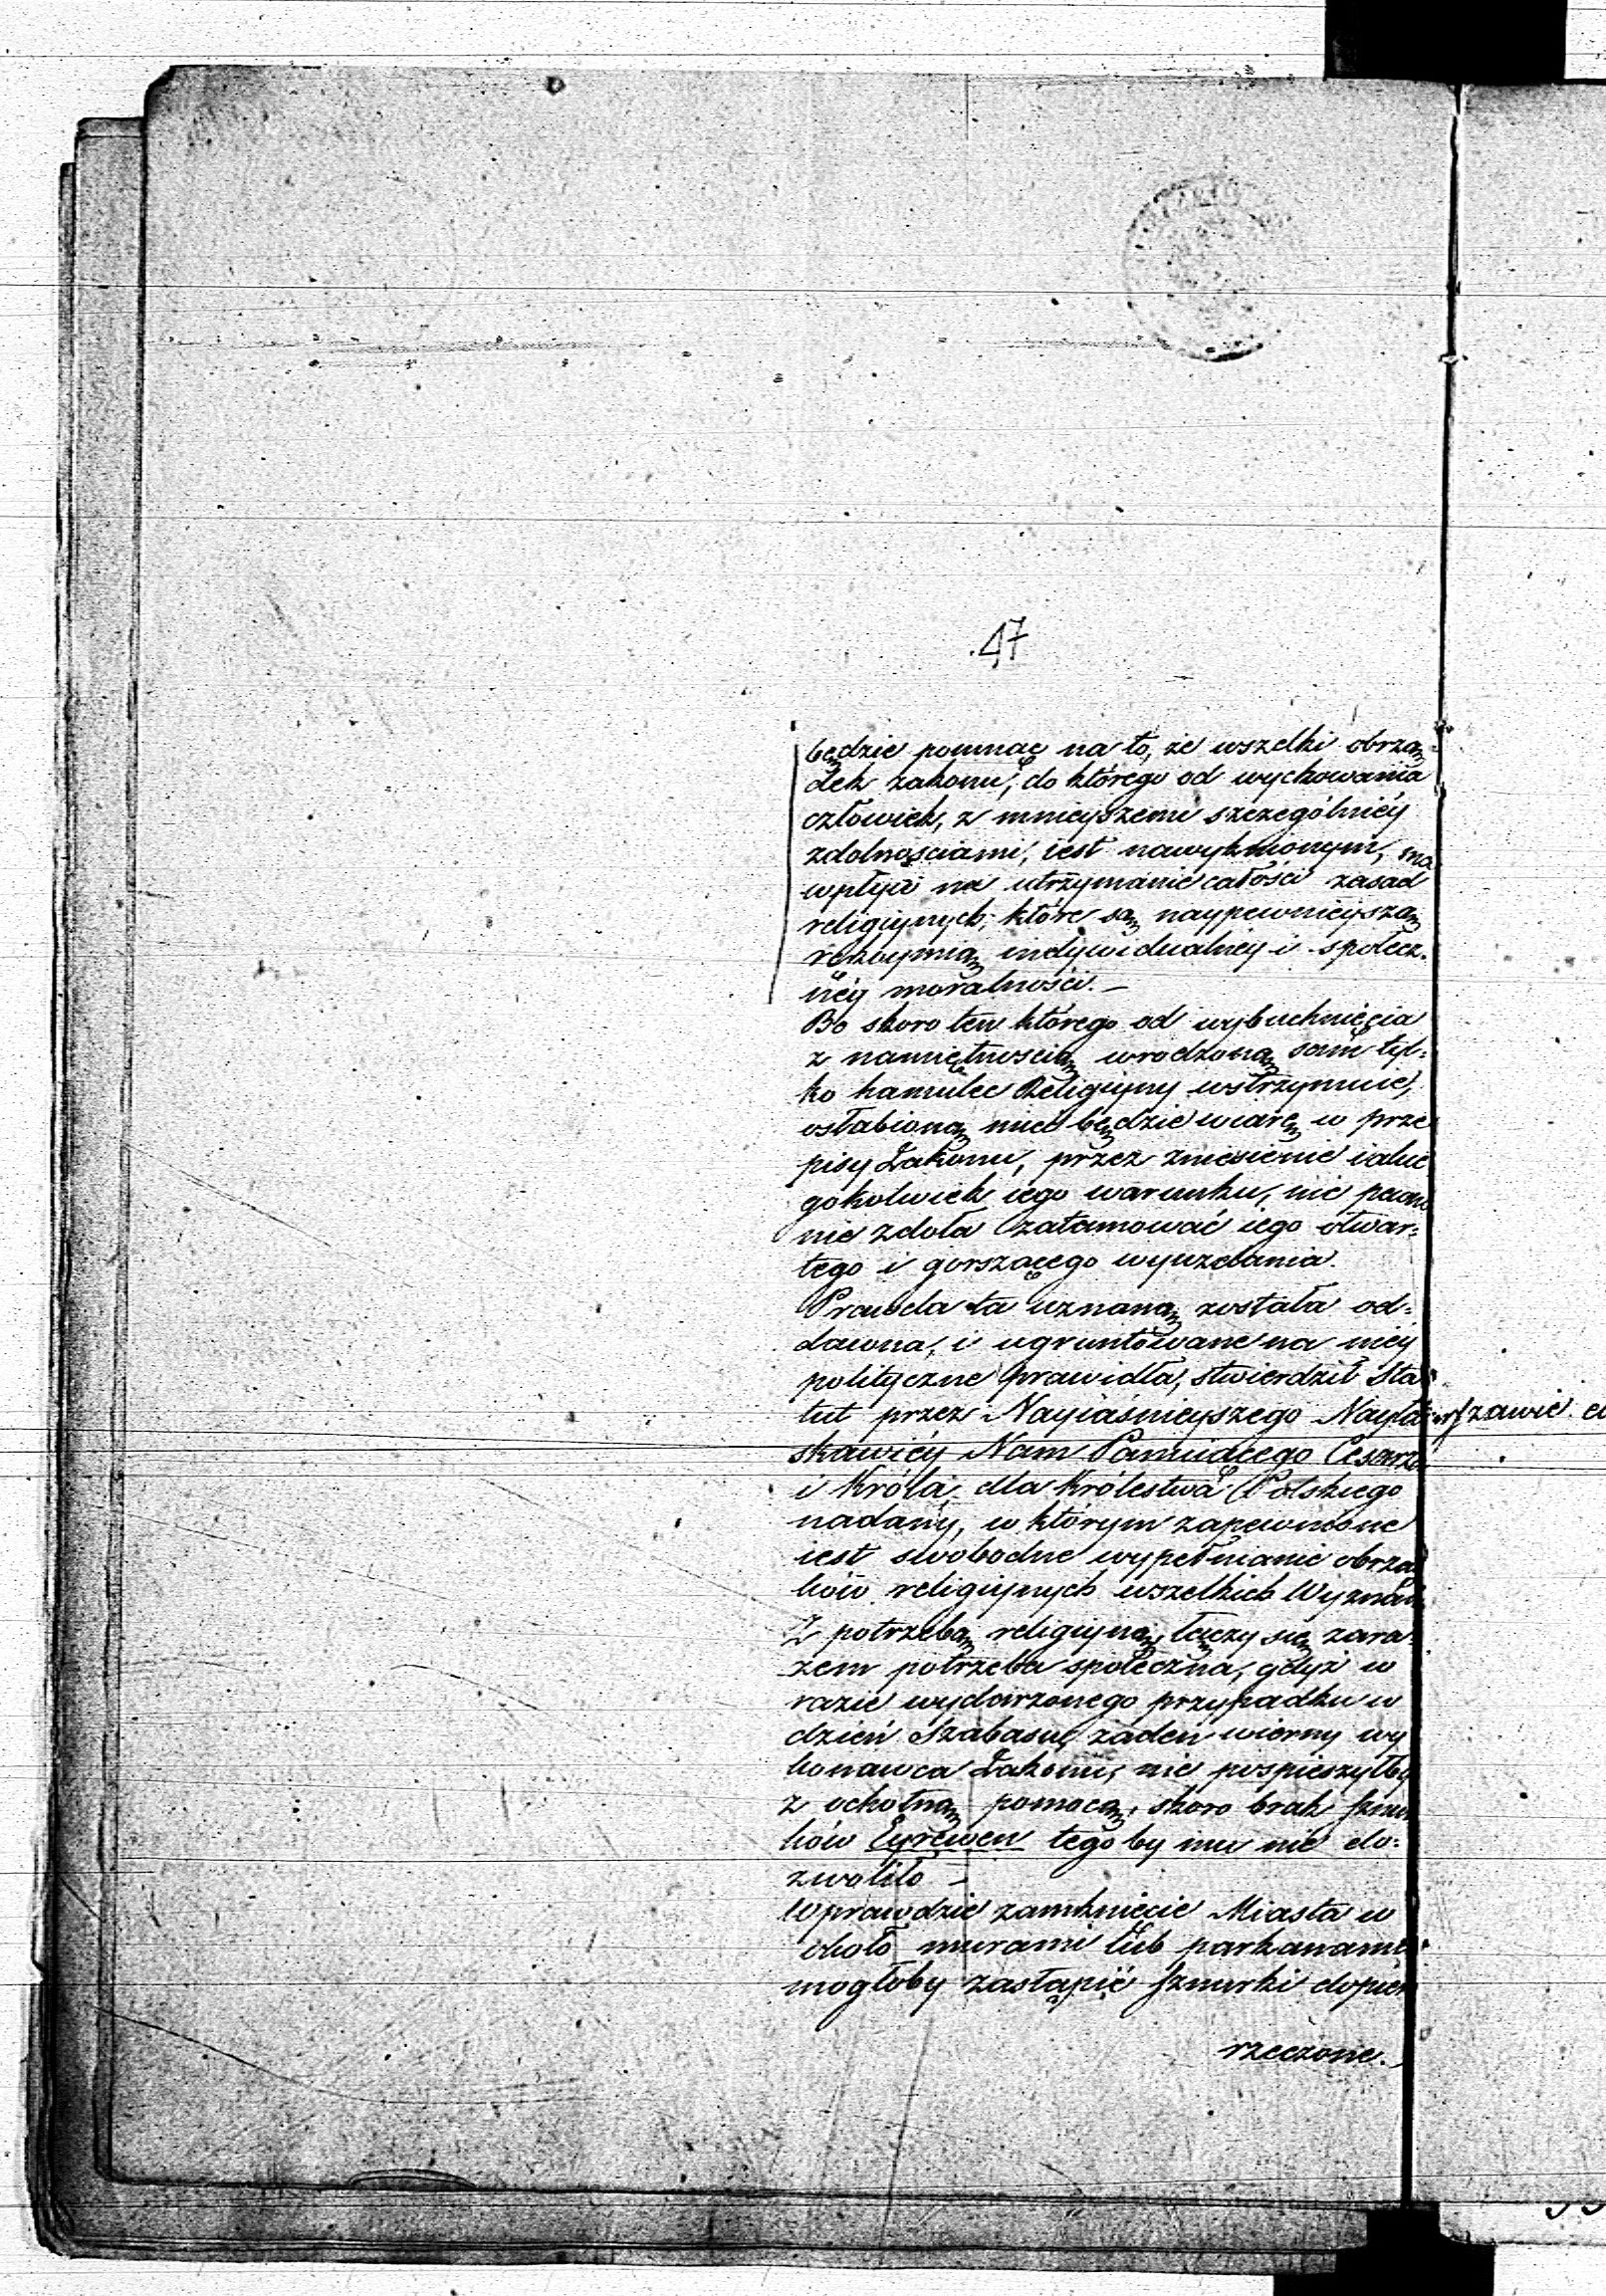 47
będzie pomnąc na to, że wszelki obrzą
dek zakonu, do którego od wychowania
człowiek, z mnieyszemi szczególniéy
zdolnościami, iest nawyknionym, ma
wpływ na utrzymanie całości zasad
religiynych, które są naypewnieyszą
rękoymią indywidualney i społecz-
néy moralności. –
Bo skoro ten którego od wybuchnięcia
z namiętnością wrodzoną sam tyl:
ko hamulec Religiyny wstrzymuie,
osłabioną mieć będzie wiarę w prze
pisy Zakonu, przez zniesienie iakie
gokolwiek iego warunku, nic pewno
nie zdoła zatamować iego otwar:
tego i gorszącego wyuzdania.
Prawda ta uznaną została od:
dawna, i ugruntowane na niéy
polityczne prawidła, stwierdził Sta
tut przez Nayiaśnieyszego Nayła
skawiéy Nam Panuiącego Cesarza
i Króla, dla Królestwa Polskiego
nadany, w którym zapewnione
iest swobodne wypełnianie obrząd
ków religiynych wszelkich Wyznań
Z potrzebą religiyną, łączy się zara
zem potrzeba społeczna, gdyż w
razie wydarzonego przypadku w
dzień Szabasu, żaden wierny wy
konawca Zakonu, nie pospieszyłby
z ochotną pomocą, skoro brak sznur
ków Eyrewen tego by mu nie do:
zwoliło –
Wprawdzie zamknięcie Miasta w
około murami lub parkanami
mogłoby zastąpić sznurki dopier
rzeczone.